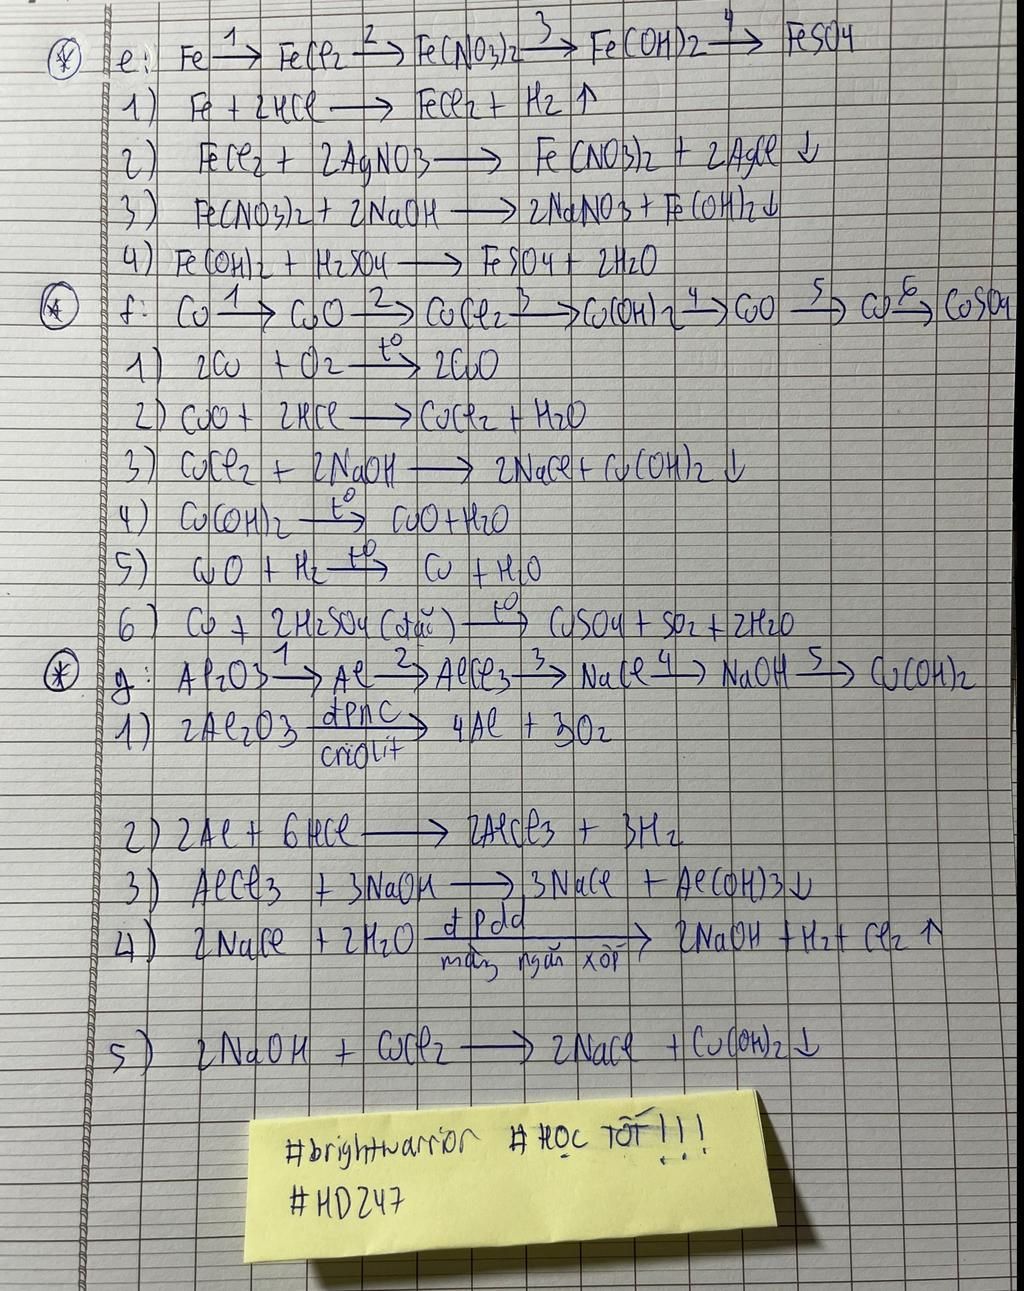 e: Fe 1→ FeCl2 2→ Fe(NO3)2 3→ Fe(OH)2 4→ FeSO4
1) Fe + 2HCl → FeCl2 + H2 ↑
2) FeCl2 + 2AgNO3 → Fe(NO3)2 + 2AgCl ↓
3) Fe(NO3)2 + 2NaOH → 2NaNO3 + Fe(OH)2 ↓
4) Fe(OH)2 + H2SO4 → FeSO4 + 2H2O
f: Cu 1→ CuO 2→ CuCl2 3→ Cu(OH)2 4→ CuO 5→ Cu 6→ CuSO4
1) 2Cu + O2 t°→ 2CuO
2) CuO + 2HCl → CuCl2 + H2O
3) CuCl2 + 2NaOH → 2NaCl + Cu(OH)2 ↓
4) Cu(OH)2 t°→ CuO + H2O
5) CuO + H2 t°→ Cu + H2O
6) Cu + 2H2SO4 (đặc) t°→ CuSO4 + SO2 + 2H2O
g: Al2O3 1→ Al 2→ AlCl3 3→ NaCl 4→ NaOH 5→ Cu(OH)2
1) 2Al2O3 đpnc→ 4Al + 3O2
criolit
2) 2Al + 6HCl → 2AlCl3 + 3H2
3) AlCl3 + 3NaOH → 3NaCl + Al(OH)3 ↓
4) 2NaCl + 2H2O đpdd→ 2NaOH + H2 + Cl2 ↑
màng ngăn xốp
5) 2NaOH + CuCl2 → 2NaCl + Cu(OH)2 ↓
#brightwarrior #HỌC TỐT!!!
#HD247